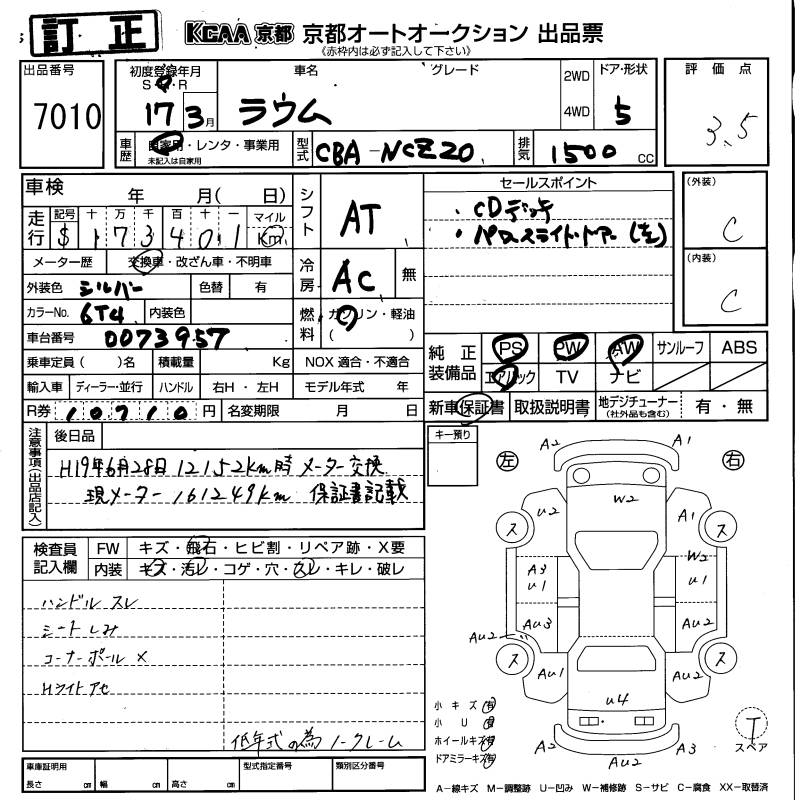 訂正
KCAA 京都 京都オートオークション 出品票
《赤枠内は必ず記入して下さい》
出品番号
7010
初度登録年月
S・H・R
17 3月
車名
ラウム
グレード
2WD
4WD
ドア・形状
5
評価点
3.5
車歴
自家用・レンタ・事業用
未記入は自家用
型式
CBA-NCZ20
排気
1500 cc
車検 年 月( 日)
走行
記号 十 万 千 百 十 一 マイル
$ 1 7 3 4 0 1 Km
メーター歴 交換車・改ざん車・不明車
外装色 シルバー 色替 有
カラーNo. 6T4 内装色
車台番号 0073957
乗車定員( )名 積載量 Kg NOX 適合・不適合
輸入車 ディーラー・並行 ハンドル 右H・左H モデル年式 年
R券 10710円 名変期限 月 日
シフト AT
冷房 AC 無
燃料 ガソリン・軽油
( )
セールスポイント
・CDデッキ
・パワースライドドアー(左)
(外装)
C
(内装)
C
純正装備品
PS PW AW サンルーフ ABS
エアバック TV ナビ
新車保証書 取扱説明書 地デジチューナー(社外品も含む) 有・無
注意事項(出品店記入)
後日品
H19年6月28日 12152km時 メーター交換
現メーター 161249km 保証書記載
キー預り
左
右
A2 A1
W2
U2 A1
ス ス
W2
A3 U1 U1
AU3 AU2
AU2
ス ス
AU1 AU2
U4
A2 AU2 A3
小キズ 有
小U 有
ホイールキズ 有
ドアミラーキズ 有
T
スペア
検査員記入欄
FW キズ・飛石・ヒビ割・リペア跡・X要
内装 キズ・汚レ・コゲ・穴・スレ・キレ・破レ
ハンドル スレ
シートしみ
コーナーポール ×
Hライトアセ
低年式の為ノークレーム
車庫証明用
長さ cm 幅 cm 高さ cm
型式指定番号
類別区分番号
A－線キズ M－調整跡 U－凹み W－補修跡 S－サビ C－腐食 XX－取替済